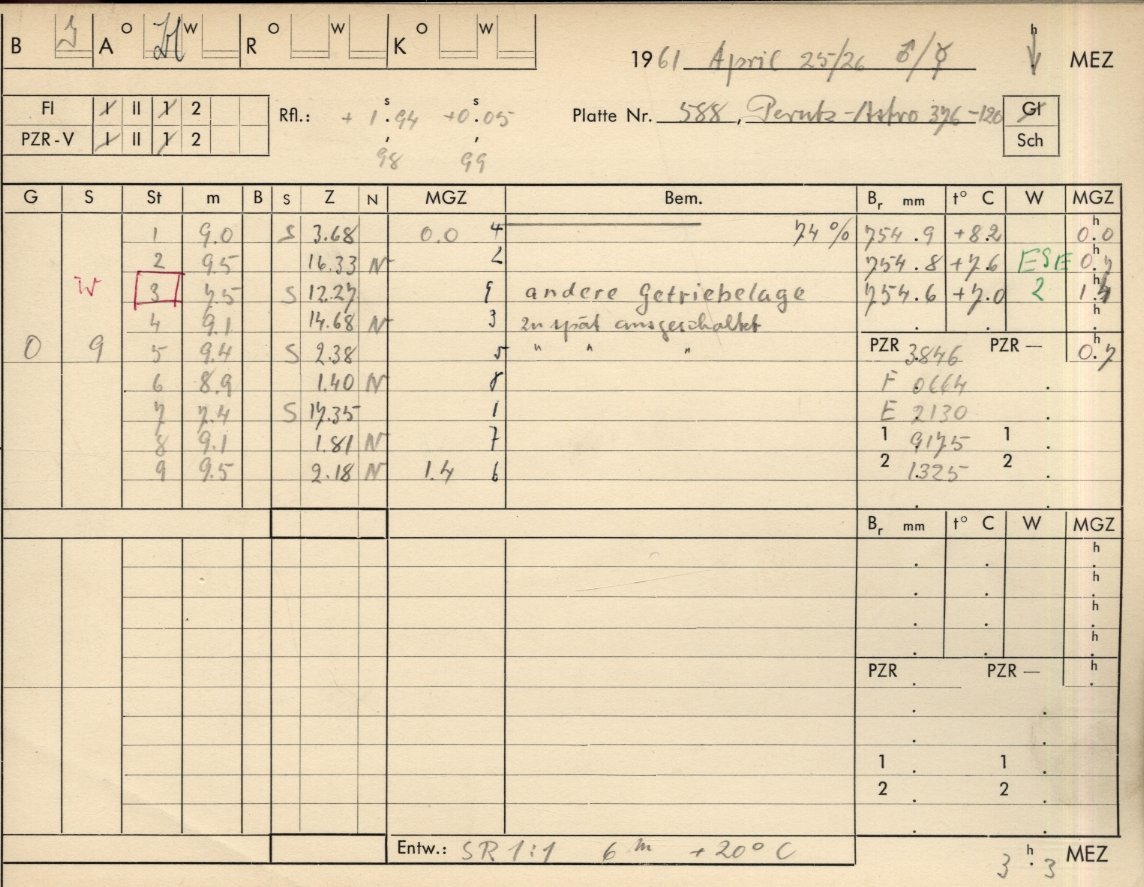 B A O W R O W K O W
1961 April 25/26 ♂/☿ h MEZ
FI I II 1 2
PZR-V I II 1 2
Rfl.: + 1ˢ.94 +0ˢ.05
98 99
Platte Nr. 588, Perutz-Astro 376-120 Gl
Sch
G S St m B S Z N MGZ Bem. Bᵣ mm t° C W MGZ
1 9.0 S 3.68 0.0 4 74 % 754.9 +8.2 0ʰ.0
2 9.5 16.33 N 2 754.8 +7.6 ESE 0ʰ.7
W 3 7.5 S 12.27 9 andere Getriebelage 754.6 +7.0 2 1ʰ.4
4 9.1 14.68 N 3 zu spät ausgeschaltet h
0 9 5 9.4 S 2.38 5 " " " PZR 3846 PZR — 0ʰ.7
6 8.9 1.40 N 8 F 0664
7 7.4 S 17.35 1 E 2130
8 9.1 1.81 N 7 1 9175 1
9 9.5 2.18 N 1.4 6 2 1325 2
Bᵣ mm t° C W MGZ
h
h
h
h
PZR PZR — h
1 1
2 2
Entw.: SR 1:1 6ᵐ +20° C
3ʰ.3 MEZ